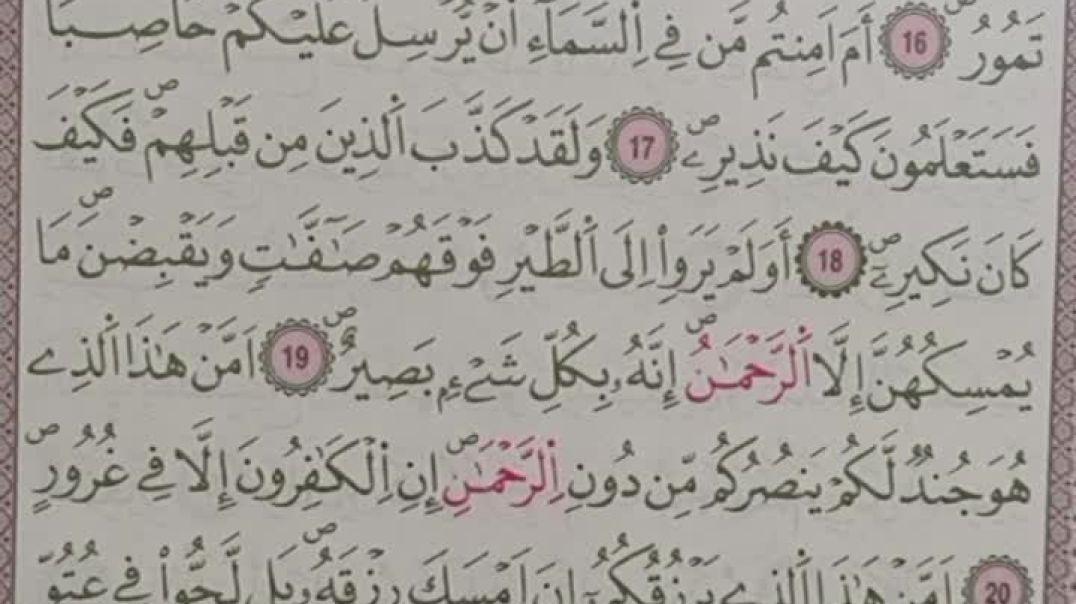 تَمُورُ ۖ 16 أَمَ اَمِنتُم مَّن فِي اِ۬لسَّمَآءِ اَنْ يُّرْسِلَ عَلَيْكُمْ حَاصِباٗ
فَسَتَعْلَمُونَ كَيْفَ نَذِيرِۦ ۖ 17 وَلَقَدْ كَذَّبَ اَ۬لذِينَ مِن قَبْلِهِمْ ۖ فَكَيْفَ
كَانَ نَكِيرِۦٓ ۖ 18 أَوَلَمْ يَرَوِاْ اِلَى اَ۬لطَّيْرِ فَوْقَهُمْ صَٰٓفَّٰتٖ وَيَقْبِضْنَ ۖ مَا
يُمْسِكُهُنَّ إِلَّا اَ۬لرَّحْمَٰنُ ۖ إِنَّهُۥ بِكُلِّ شَےْءِۢ بَصِيرٌ ۖ 19 اَمَّنْ هَٰذَا اَ۬لذِے
هُوَ جُندٞ لَّكُمْ يَنصُرُكُم مِّن دُونِ اِ۬لرَّحْمَٰنِ ۖ إِنِ اِ۬لْكَٰفِرُونَ إِلَّا فِي غُرُورٍ ۖ
20 اَمَّنْ هَٰذَا اَ۬لذِے يَرْزُقُكُمُۥٓ إِنَ اَمْسَكَ رِزْقَهُۥ ۖ بَل لَّجُّواْ فِي عُتُوّٖ